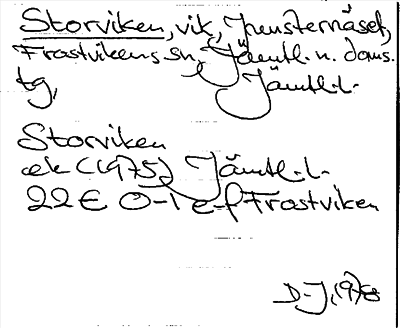 Storviken, vik, Junsternäset,
Frostvikens sn, Jämtl. n. doms.
tg, Jämtl. l.
Storviken
ek (1975) Jämtl. l.
22E 0-1 e-f Frostviken
D-J, 1978